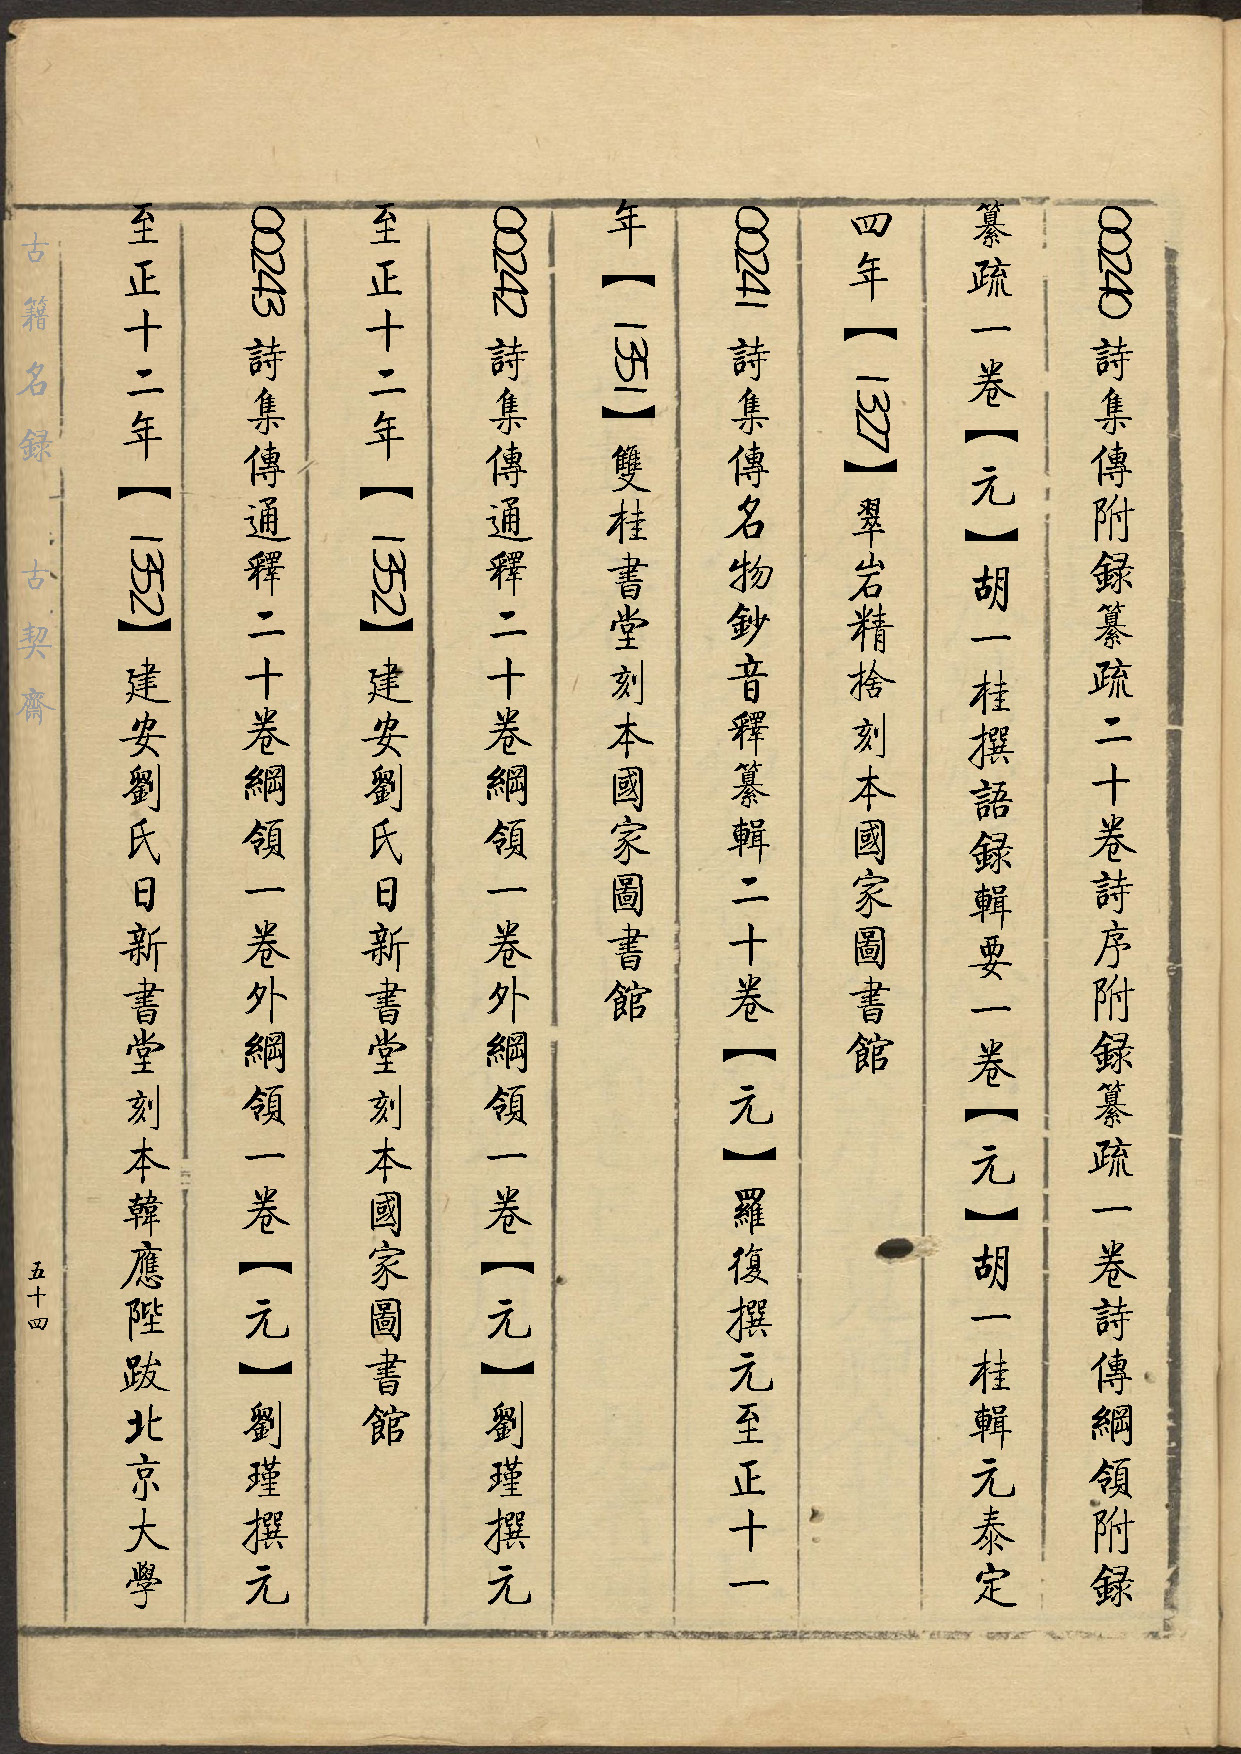 00240詩集傳附録纂疏二十卷詩序附録纂疏一卷詩傳綱領附録
纂疏一卷【元】胡一桂撰語録輯要一卷【元】胡一桂輯元泰定
四年【1327】翠岩精捨刻本國家圖書館
00241詩集傳名物鈔音釋纂輯二十卷【元】羅復撰元至正十一
年【1351】雙桂書堂刻本國家圖書館
00242詩集傳通釋二十卷綱領一卷外綱領一卷【元】劉瑾撰元
至正十二年【1352】建安劉氏日新書堂刻本國家圖書館
00243詩集傳通釋二十卷綱領一卷外綱領一卷【元】劉瑾撰元
至正十二年【1352】建安劉氏日新書堂刻本韓應陛跋北京大學
古籍名録 古契齋
五十四